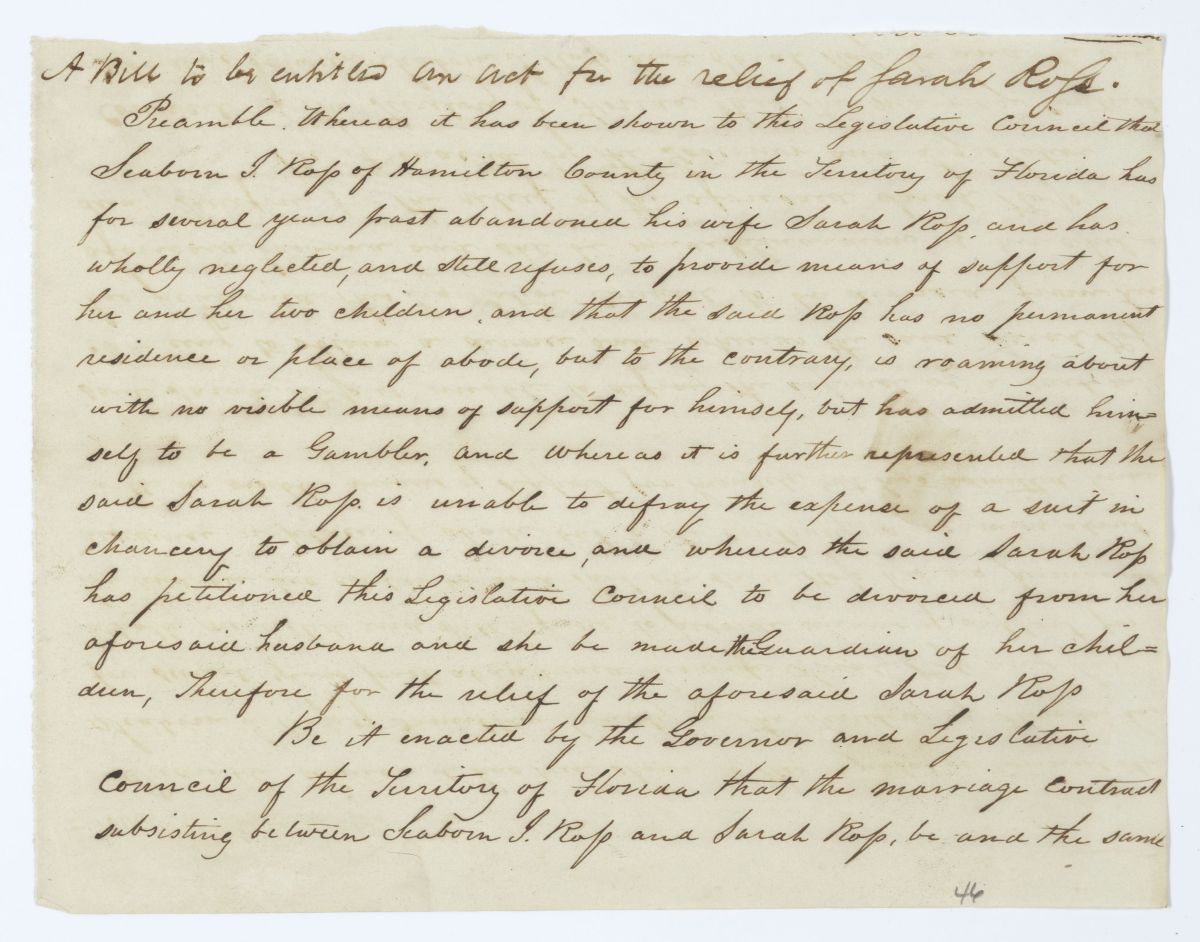 A Bill to be entitled An Act for the relief of Sarah Ross.
Preamble. Whereas it has been shown to this Legislative Council that
Seaborn J. Ross of Hamilton County in the Territory of Florida has
for several years past abandoned his wife Sarah Ross, and has
wholly neglected, and still refuses, to provide means of support for
her and her two children, and that the said Ross has no permanent
residence or place of abode, but to the contrary, is roaming about
with no visible means of support for himself, but has admitted him=
self to be a Gambler, and whereas it is further represented that the
said Sarah Ross is unable to defray the expense of a suit in
chancery to obtain a divorce, and whereas the said Sarah Ross
has petitioned this Legislative Council to be divorced from her
aforesaid husband and she be made the Guardian of her chil=
dren, Therefore for the relief of the aforesaid Sarah Ross
Be it enacted by the Governor and Legislative
Council of the Territory of Florida that the marriage contract
subsisting between Seaborn J. Ross and Sarah Ross, be and the same
46